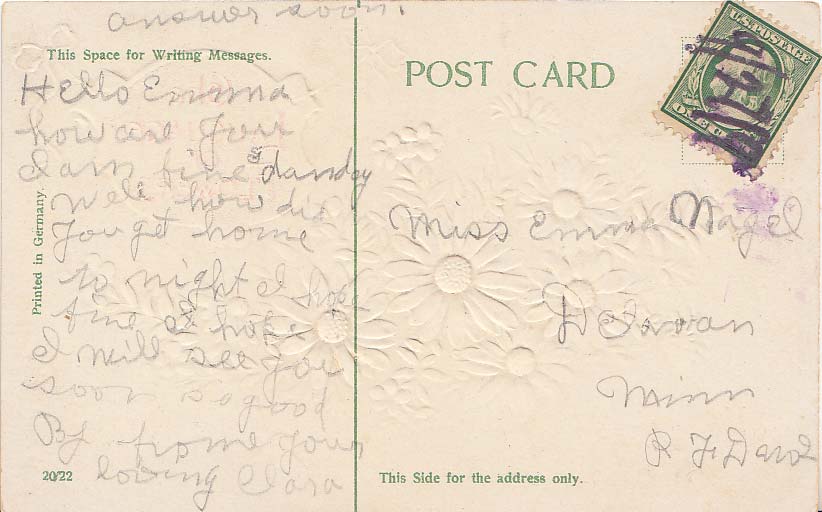 answer soon.
This Space for Writing Messages.
Hello Emma
how are you
I am fine & danday
Well how did
you get home
to night I hope
fine I hope
I will see you
soon so good
By frome your
loving Clara
Printed in Germany.
20/22
POST CARD
U.S. POSTAGE
ONE CENT
Miss Emma Nagel
Delavan
Minn
R F D
This Side for the address only.